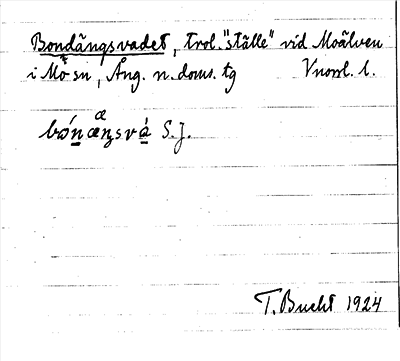 Bondängsvadet, trol. "ställe" vid Moälven
i Mo sn, Ång. n. doms. tg Vnorrl. l.
S.J.
T. Bucht 1924